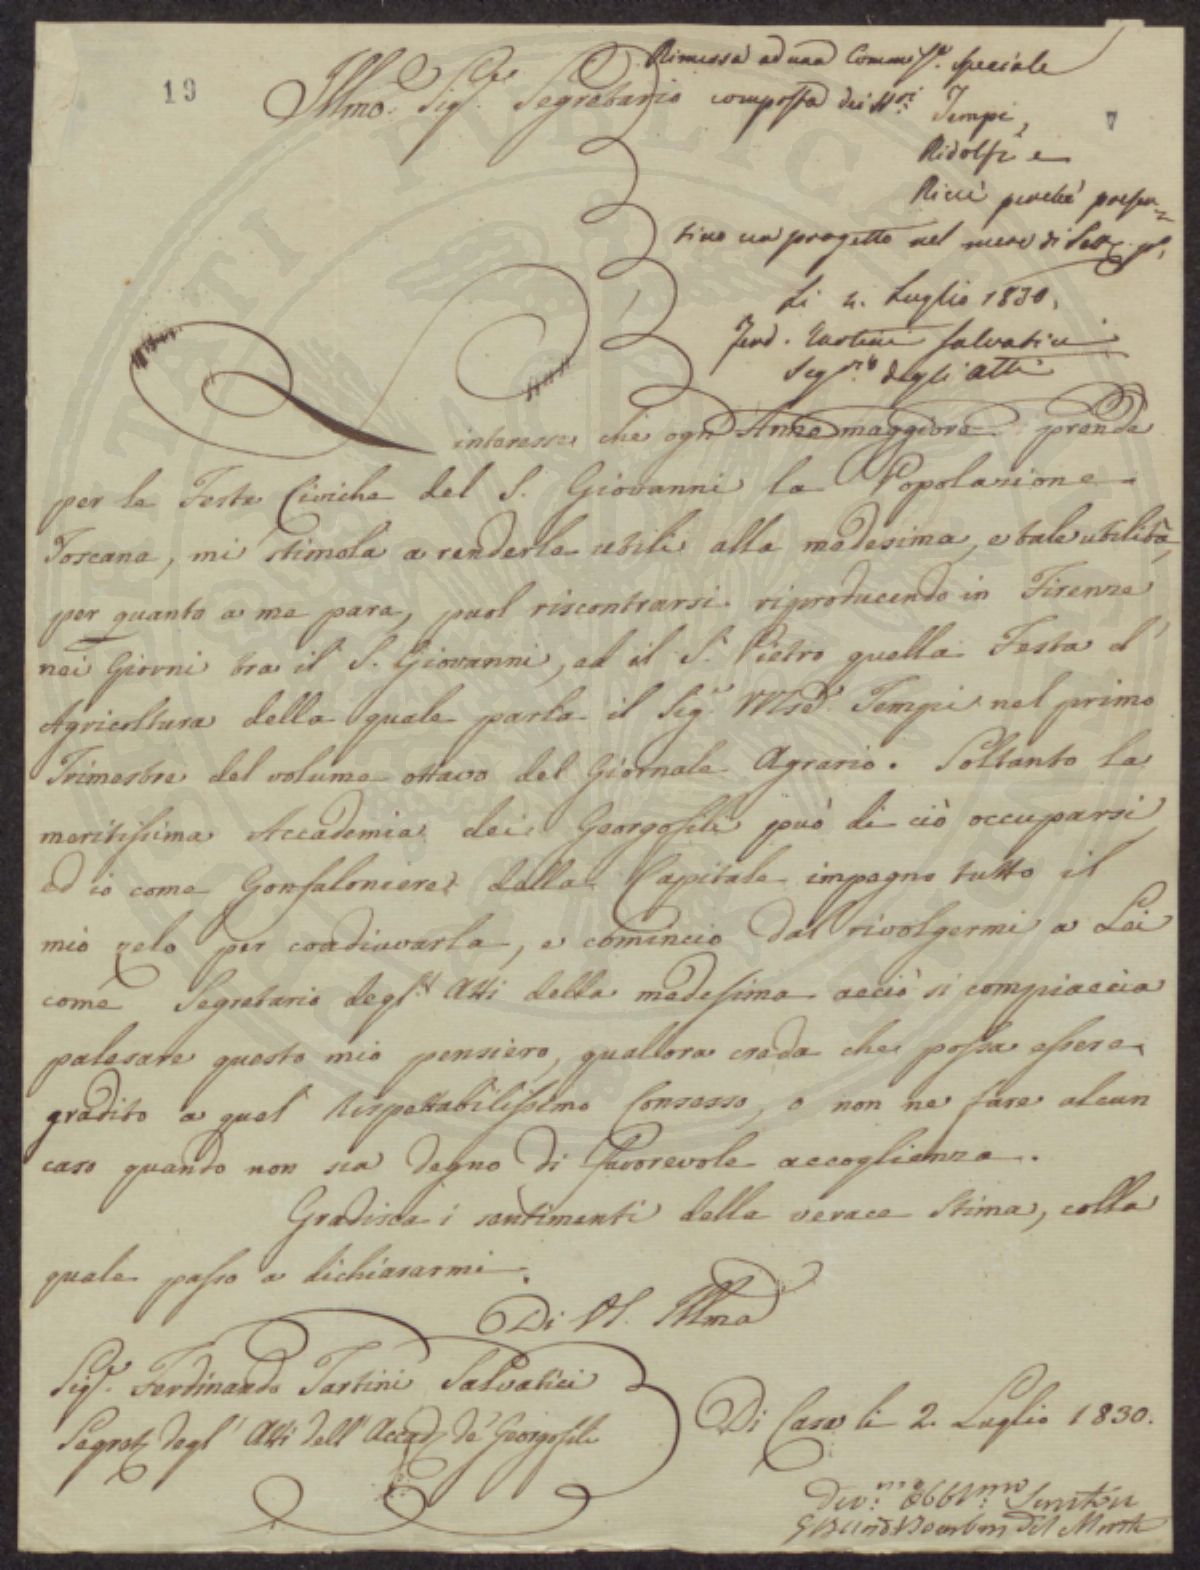 19
Illmo. Sig.re Segretario
Rimessa ad una Commiss.e speciale
composta dei SS.ri Tempi,
Ridolfi e
Ricci perché presen-
tino un progetto nel mese di Sett.e p.
Li 2. Luglio 1830.
Ferd. Tartini Salvatici
Seg.rio degli Atti
L'interesse che ogn'Anno maggiore prende
per le Feste Civiche del S. Giovanni la Popolazione
Toscana, mi stimola a renderle utili alla medesima, e tale utilità,
per quanto a me pare, puol riscontrarsi riproducendo in Firenze
nei Giorni tra il S. Giovanni, ed il S. Pietro quella Festa d'
Agricoltura della quale parla il Sig.r Tempi nel primo
Trimestre del volume ottavo del Giornale Agrario. Soltanto la
meritissima Accademia dei Georgofili può di ciò occuparsi
ed io come Gonfaloniere della Capitale impegno tutto il
mio zelo per coadiuvarla, e comincio dal rivolgermi a Lei
come Segretario degl'Atti della medesima acciò si compiaccia
palesare questo mio pensiero, quallora creda che possa essere
gradito a quel Rispettabilissimo Consesso, o non ne fare alcun
caso quando non sia degno di favorevole accoglienza.
Gradisca i sentimenti della verace stima, colla
quale passo a dichiararmi.
Di VS. Illma
Sig.re Ferdinando Tartini Salvatici
Segret. degl'Atti dell'Accad. de' Georgofili
Di Casa li 2. Luglio 1830.
Dev.mo Obbl.mo Servitore
Bourbon del Monte